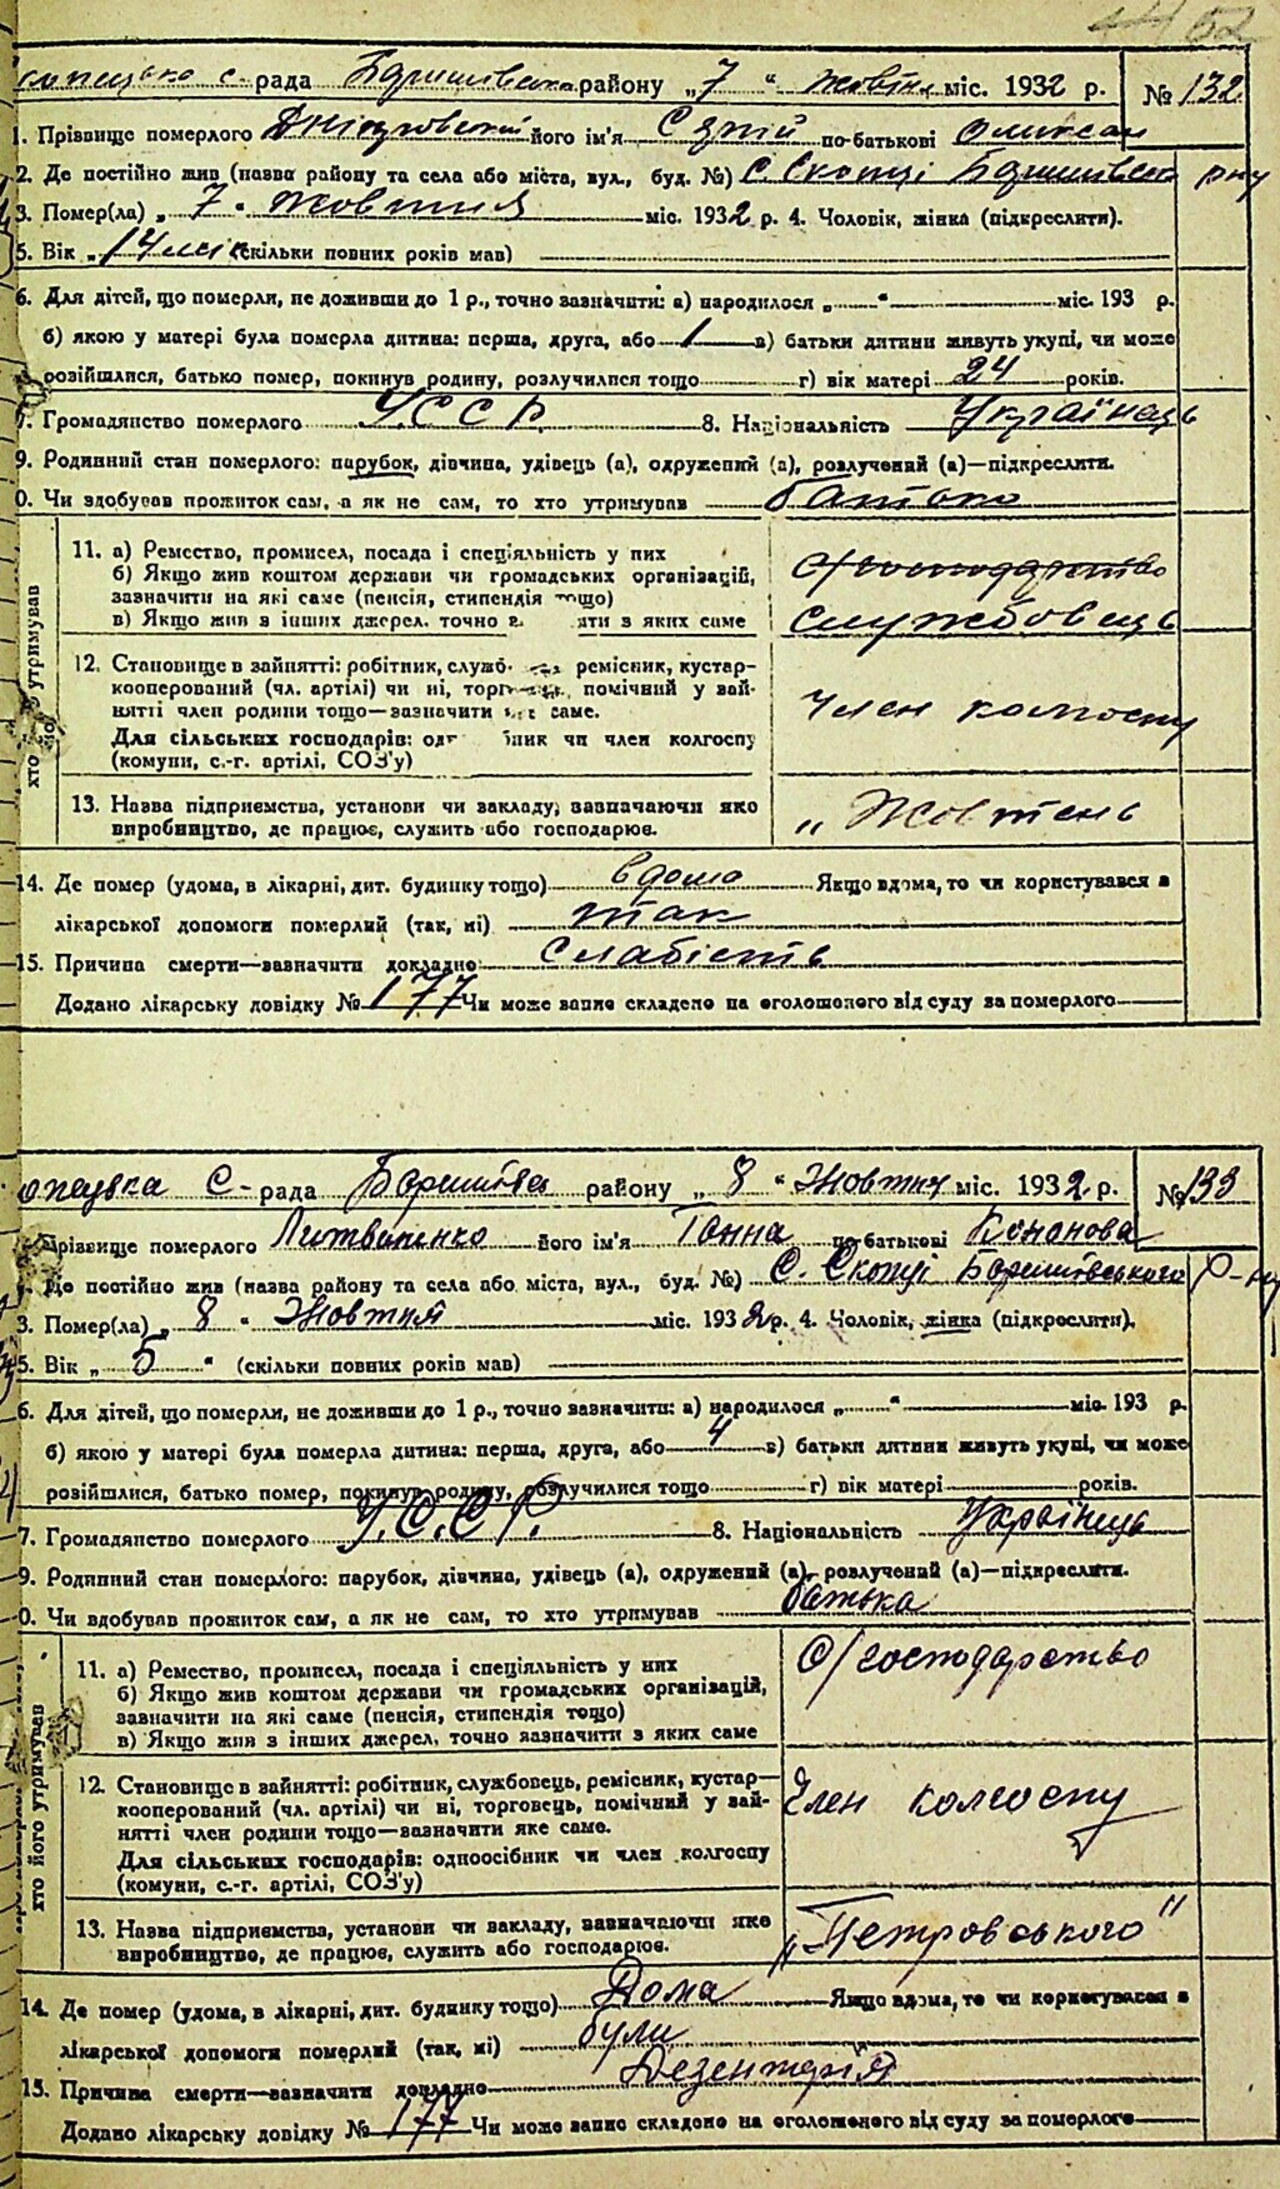 с-рада району „7“ Жовтня міс. 1932 р. № 132
1. Прізвище померлого його ім'я по-батькові Олексан
2. Де постійно жив (назва району та села або міста, вул., буд. №) С. Скопці р-ну
3. Помер(ла) „7“ Жовтня міс. 1932 р. 4. Чоловік, жінка (підкреслити).
5. Вік „14 (скільки повних років мав)
6. Для дітей, що померли, не доживши до 1 р., точно зазначити: а) народилося „ “ міс. 193 р.
б) якою у матері була померла дитина: перша, друга, або 1 в) батьки дитини живуть укупі, чи може
розійшлися, батько помер, покинув родину, розлучилися тощо г) вік матері 24 років.
7. Громадянство померлого У.С.С.Р. 8. Національність Українець
9. Родинний стан померлого: парубок, дівчина, удівець (а), одружений (а), розлучений (а)—підкреслити.
0. Чи здобував прожиток сам, а як не сам, то хто утримував батько
хто утримував
11. а) Ремество, промисел, посада і спеціяльність у них
б) Якщо жив коштом держави чи громадських організацій,
зазначити на які саме (пенсія, стипендія тощо)
в) Якщо жив з інших джерел, точно з яких саме
с/господарство
службовець
12. Становище в зайнятті: робітник, служб ремісник, кустар-
кооперований (чл. артілі) чи ні, торг помічний у зай-
нятті член родини тощо—зазначити яке саме.
Для сільських господарів: од чи член колгоспу
(комуни, с.-г. артілі, СОЗ'у)
Член колгоспу
13. Назва підприємства, установи чи закладу, зазначаючи яке
виробництво, де працює, служить або господарює.
„Жовтень
14. Де помер (удома, в лікарні, дит. будинку тощо) вдома Якщо вдома, то чи користувався з
лікарської допомоги померлий (так, ні) так
15. Причина смерти—зазначити докладно Слабість
Додано лікарську довідку № 177 Чи може запис складено на оголошеного від суду за померлого
с-рада району „8“ Жовтня міс. 1932 р. № 133
Прізвище померлого Литвиненко його ім'я Ганна по-батькові Кононова
Де постійно жив (назва району та села або міста, вул., буд. №) С. Скопці Баришівського Р-ну
3. Помер(ла) „8“ Жовтня міс. 1932 р. 4. Чоловік, жінка (підкреслити).
5. Вік „5“ (скільки повних років мав)
6. Для дітей, що померли, не доживши до 1 р., точно зазначити: а) народилося „ “ міс. 193 р.
б) якою у матері була померла дитина: перша, друга, або 4 в) батьки дитини живуть укупі, чи може
розійшлися, батько помер, покинув родину, розлучилися тощо г) вік матері років.
7. Громадянство померлого У.С.С.Р. 8. Національність Українець
9. Родинний стан померлого: парубок, дівчина, удівець (а), одружений (а), розлучений (а)—підкреслити.
0. Чи здобував прожиток сам, а як не сам, то хто утримував батька
хто його утримував
11. а) Ремество, промисел, посада і спеціяльність у них
б) Якщо жив коштом держави чи громадських організацій,
зазначити на які саме (пенсія, стипендія тощо)
в) Якщо жив з інших джерел, точно зазначити з яких саме
С/господарство
12. Становище в зайнятті: робітник, службовець, ремісник, кустар—
кооперований (чл. артілі) чи ні, торговець, помічний у зай-
нятті член родини тощо—зазначити яке саме.
Для сільських господарів: одноосібник чи член колгоспу
(комуни, с.-г. артілі, СОЗ'у)
Член колгоспу
13. Назва підприємства, установи чи закладу, зазначаючи яке
виробництво, де працює, служить або господарює.
„Петровського"
14. Де помер (удома, в лікарні, дит. будинку тощо) Дома Якщо вдома, то чи користувався з
лікарської допомоги померлий (так, ні) були
15. Причина смерти—зазначити докладно Дезентерія
Додано лікарську довідку № 177 Чи може запис складено на оголошеного від суду за померлого